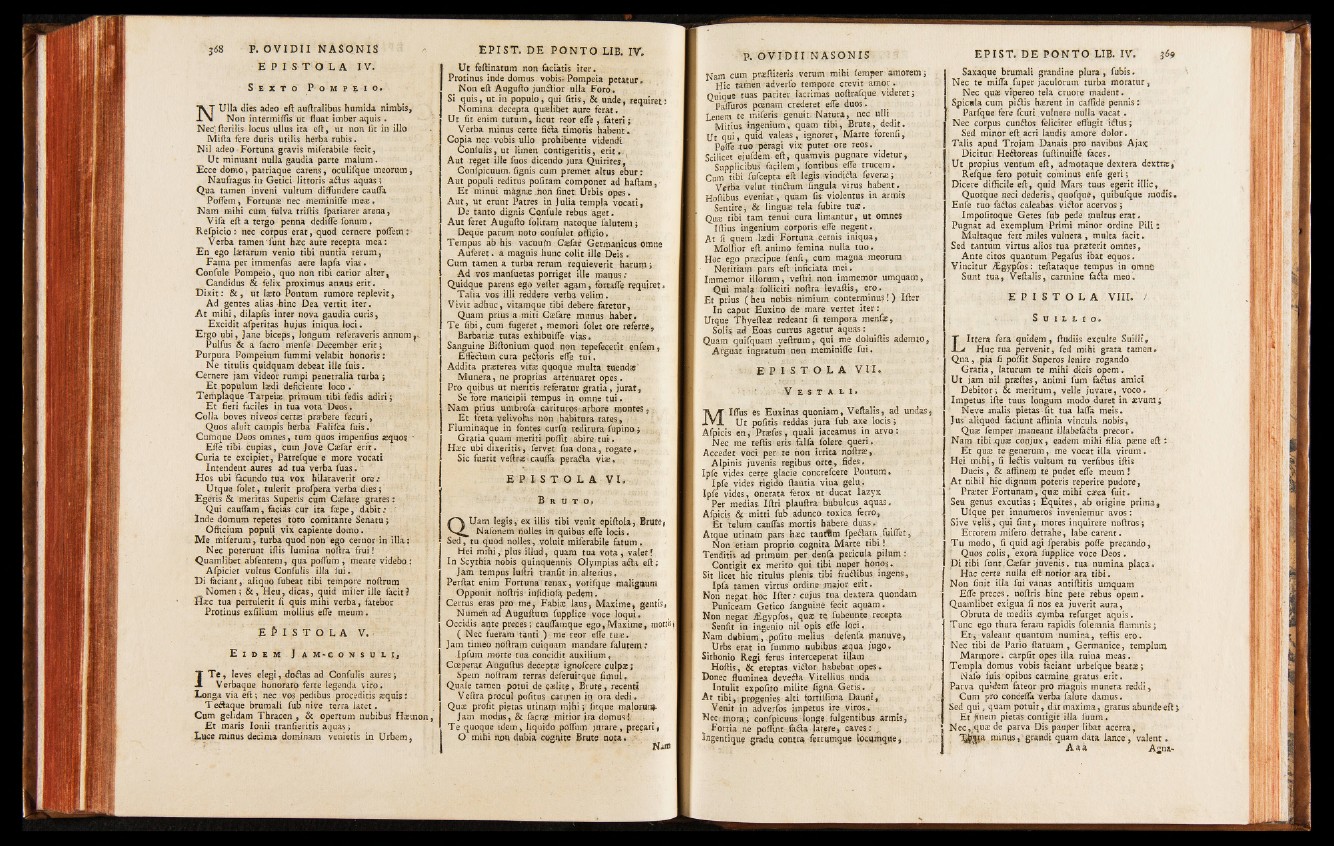 368 P. OVIDII NASONIS
EPISTOLA IV.
SEXTO POMPEIO.
NUlla dies adeo eſt auſtralibus humida nimbis,
Non intermiſſis ut fluat imber aquis.
Nec ſterilis locus ullus ita eſt, ut non ſit in illo
Miſta fere duris utilis herba rubis.
Nil adeo Fortuna gravis miſerabile fecit,
Ut minuant nulla gaudia parte malum.
Ecce domo, patriaque carens, oculiſque meorum,
Naufragus in Getici littoris actus aquas;
Qua tamen inveni vulnrum diffundere cauſſa
Poſſem, Fortunæ nec meminiſſe meæ.
Nam mihi cum fulva triſtis ſpatiarer arena,
Viſa eſt a tergo penna dediſſe ſonum.
Reſpicio: nec corpus erat, quod cernere poſſem:
Verba tamen ſunt hæc aure recepta mea:
En ego lætarum venio tibi nuntia rerum,
Fama per immenſas aere lapſa vias.
Conſule Pompeio, quo non tibi carior alter,
Candidus & felix proximus annus erit.
Dixit: &, ut læto Pontum rumore replevit,
Ad gentes alias hinc Dea vertit iter.
At mihi, dilapſis inter nova gaudia curis,
Excidit aſperitas hujus iniqua loci.
Ergo ubi, Jane biceps, longum referaveris annum,
Pulſus & a ſacro menſe December erit;
Purpura Pompeium ſummi velabit honoris:
Ne titulis quidquam debeat ille ſuis.
Cernere jam videor rumpi penetralia turba;
Et populum lædi deficiente loco.
Templaque Tarpeiæ primum tibi ſedis adiri;
Et fieri faciles in tua vota Deos.
Colla boves niveos certæ præbere ſecuri,
Quos aluit campis herba Faliſca ſuis.
Cumque Deos omnes, tum quos impenſius æquos
Eſſe tibi cupias, cum Jove Cæſar erit.
Curia te excipiet, Patreſque e more vocati
Intendent aures ad tua verba ſuas.
Hos ubi facundo tua vox hilaraverit ore:
Utque ſolet, tulerit proſpera verba dies;
Egeris & meritas Superis cum Cæſare grates:
Qui cauſſam, facias cur ita ſæpe, dabit:
Inde domum repetes toto comitante Senatu;
Officium populi vix capiente domo.
Me miſerum, turba quod non ego cernor in illa:
Nec poterunt iſtis lumina noſtra frui!
Quamlibet abſentem, qua poſſum, mente videbo:
Aſpiciet vultus Conſulis illa ſui.
Di faciant, aliquo ſubeat tibi tempore noſtrum
Nomen; &, Heu, dicas, quid miſer ille facit?
Hæc tua pertulerit ſi quis mihi verba, fatebor
Protinus exſilium mollius eſſe meum.
EPISTOLA V.
EIDEM JAM-CONSULI,
ITe, leves elegi, doctas ad Conſulis aures;
Verbaque honorato ferte legenda viro.
Longa via eſt; nec vos pedibus proceditis æquis:
Tectaque brumali ſub nive terra latet.
Cum gelidam Thracen, & opertum nubibus Hæmon,
Et maris Ionii tranſieritis aquas;
Luce minus decima dominam venietis in Urbem,
EPIST. DE PONTO LIB. IV.
Ut feſtinatum non faciatis iter.
Protinus inde domus vobis Pompeia petatur.
Non eſt Auguſto junctior ulla Foro.
Si quis, ut in populo, qui ſitis, & unde, requiret:
Nomina decepta quælibet aure ferat.
Ut ſit enim tutum, ſicut reor eſſe, fateri;
Verba minus certe ficta timoris habent.
Copia nec vobis ullo prohibente videndi
Conſulis, ut limen contigeritis, erit.
Aut reget ille ſuos dicendo jura Quirites,
Conſpicuum ſignis cum premet altus ebur:
Aut populi reditus poſitam componet ad haſtam,
Et minui magnæ non ſinet Urbis opes.
Aut, ut erunt Patres in Julia templa vocati,
De tanto dignis Conſule rebus aget.
Aut feret Auguſto ſolitam natoque ſalutem;
Deque parum noto conſulet officio.
Tempus ab his vacuum Cæſar Germanicus omne
Auferet. a magnis hunc colit ille Deis.
Cum tamen a turba rerum requieverit harum;
Ad vos manſuetas porriget ille manus:
Quidque parens ego veſter agam, fortaſſe requiret.
Talia vos illi reddere verba velim.
Vivit adhuc, vitamque tibi debere fatetur,
Quam prius a miti Cæſare munus habet.
Te ſibi, cum fugeret, memori ſolet ore referre,
Barbariæ tutas exhibuiſſe vias.
Sanguine Biſtonium quod non tepefecerit enſem,
Effectum cura pectoris eſſe tui.
Addita præterea vitæ quoque multa tuendæ
Munera, ne proprias attenuaret opes.
Pro quibus ut meritis referatur gratia, jurat,
Se fore mancipii tempus in omne tui.
Nam prius umbroſa carituros arbore montes,
Et freta velivolas non habitura rates,
Fluminaque in fontes curſu reditura ſupino;
Gratia quam meriti poſſit abire tui.
Hæc ubi dixeritis, ſervet ſua dona, rogate.
Sic fuerit veſtræ cauſſa peracta viæ.
EPISTOLA VI.
BRUTO,
QUam legis, ex illis tibi venit epiſtola, Brute,
Naſonem nolles in quibus eſſe locis.
Sed, tu quod nolles, voluit miſerabile fatum.
Hei mihi, plus illud, quam tua vota, valet!
In Scythia nobis quinquennis Olympias acta eſt:
Jam tempus luſtri tranſit in alterius.
Perſtat enim Fortuna tenax, votiſque malignum
Opponit noſtris inſidioſa pedem.
Certus eras pro me, Fabiæ laus, Maxime, gentis,
Numen ad Auguſtum ſupplice voce loqui.
Occidis ante preces: cauſſamque ego, Maxime, mortis
(Nec fueram tanti) me reor eſſe tuæ.
Jam timeo noſtram cuiquam mandare ſalutem:
Ipſum morte tua concidit auxilium.
Cœperat Auguſtus deceptæ ignoſcere culpæ;
Spem noſtram terras deſeruitque ſimul.
Quale tamen potui de cælite, Brute, recenti
Veſtra procul poſitus carmen in ora dedi.
Quæ proſit pietas utinam mihi; ſitque malorum
Jam modus, & ſacræ mitior ira domus!
Te quoque idem, liquido poſſum jurare, precari,
O mihi non dubia cognite Brute nota.
Nam
P. OVIDII NASONIS
Nam cum præſtiteris verum mihi ſemper amorem;
Hic tamen adverſo tempore crevit amor.
Quique tuas pariter lacrimas noſtraſque videret;
Paſſuros pœnam crederet eſſe duos.
Lenem te miſeris genuit Natura, nec ulli
Mitius ingenium, quam tibi, Brute, dedit.
Ut qui, quid valeas, ignoret, Marte forenſi,
Poſſe tuo peragi vix putet ore reos.
Scilicet ejuſdem eſt, quamvis pugnare videtur,
Supplicibus facilem, ſontibus eſſe trucem.
Cum tibi ſuſcepta eſt legis vindicta ſeveræ;
Verba velut tinctum ſingula virus habent.
Hoſtibus eveniat, quam ſis violentus in armis
Sentire, & linguæ tela ſubire tuæ.
Quæ tibi tam tenui cura limantur, ut omnes
Iſtius ingenium corporis eſſe negent.
At ſi quem lædi Fortuna cernis iniqua,
Mollior eſt animo femina nulla tuo.
Hoc ego præcipue ſenſi, cum magna meorum
Notitiam pars eſt inficiata mei.
Immemor illorum, veſtri non immemor umquam,
Qui mala ſolliciti noſtra levaſtis, ero.
Et prius (heu nobis nimium conterminus!) Iſter
In caput Euxino de mare vertet iter:
Utque Thyeſteæ redeant ſi tempora menſæ,
Solis ad Eoas currus agetur aquas:
Quam quiſquam veſtrum, qui me doluiſtis ademto,
Arguat ingratum non meminiſſe ſui.
EPISTOLA VII.
VESTALI.
MIſſus es Euxinas quoniam, Veſtalis, ad undas,
Ut poſitis reddas jura ſub axe locis;
Aſpicis en, Præſes, quali jaceamus in arvo:
Nec me teſtis eris falſa ſolere queri.
Accedet voci per te non irrita noſtræ,
Alpinis juvenis regibus orte, fides.
Ipſe vides certe glacie concreſcere Pontum.
Ipſe vides rigido ſtantia vina gelu.
Ipſe vides, onerata ferox ut ducat Iazyx
Per medias Iſtri plauſtra bubulcus aquas.
Aſpicis & mitti ſub adunco toxica ferro,
Et telum cauſſas mortis habere duas.
Atque utinam pars hæc tantum ſpectata fuiſſet,
Non etiam proprio cognita Marte tibi!
Tenditis ad primum per denſa pericula pilum:
Contigit ex merito qui tibi nuper honos.
Sit licet hic titulus plenis tibi fructibus ingens,
Ipſa tamen virtus ordine major erit.
Non negat hoc Iſter: cujus tua dextera quondam
Puniceam Getico ſanguine fecit aquam.
Non negat Ægypſos, quæ te ſubeunte recepta
Senſit in ingenio nil opis eſſe loci.
Nam dubium, poſitu melius defenſa manuve,
Urbs erat in ſummo nubibus æqua jugo.
Sithonio Regi ferus interceperat illam
Hoſtis, & ereptas victor habebat opes.
Donec fluminea devecta Vitellius unda
Intulit expoſito milite ſigna Getis.
At tibi, progenies alti fortiſſima Dauni,
Venit in adverſos impetus ire viros.
Nec mora; conſpicuus longe fulgentibus armis,
Fortia ne poſſint facta latere, caves:
Ingentique gradu contra ferrumque locumque,
EPIST. DE PONTO LIB. IV. 369
Saxaque brumali grandine plura, ſubis.
Nec te miſſa ſuper jaculorum turba moratur,
Nec quæ vipereo tela cruore madent.
Spicula cum pictis hærent in caſſide pennis:
Parſque fere ſcuti vulnere nulla vacat.
Nec corpus cunctos feliciter effugit ictus;
Sed minor eſt acri laudis amore dolor.
Talis apud Trojam Danais pro navibus Ajax
Dicitur Hectoreas ſuſtinuiſſe faces.
Ut propius ventum eſt, admotaque dextera dextræ,
Reſque fero potuit cominus enſe geri;
Dicere difficile eſt, quid Mars tuus egerit illic,
Quotque neci dederis, quoſque, quibuſque modis.
Enſe tuo factos calcabas victor acervos;
Impoſitoque Getes ſub pede multus erat.
Pugnat ad exemplum Primi minor ordine Pili:
Multaque fert miles vulnera, multa facit.
Sed tantum virtus alios tua præterit omnes,
Ante citos quantum Pegaſus ibat equos.
Vincitur Ægypſos: teſtataque tempus in omne
Sunt tua, Veſtalis, carmine facta meo.
EPISTOLA VIII.
SUILLIO.
LIttera ſera quidem, ſtudiis exculte Suilli,
Huc tua pervenit, ſed mihi grata tamen.
Qua, pia ſi poſſit Superos lenire rogando
Gratia, laturum te mihi dicis opem.
Ut jam nil præſtes, animi ſum factus amici
Debitor; & meritum, velle juvare, voco.
Impetus iſte tuus longum modo duret in ævum;
Neve malis pietas ſit tua laſſa meis.
Jus aliquod faciunt affinia vincula nobis,
Quæ ſemper maneant illabefacta precor.
Nam tibi quæ conjux, eadem mihi filia pæne eſt:
Et quæ te generum, me vocat illa virum.
Hei mihi, ſi lectis vultum tu verſibus iſtis
Ducis, & affinem te pudet eſſe meum!
At nihil hic dignum poteris reperire pudore,
Præter Fortunam, quæ mihi cæca fuit.
Seu genus excutias; Equites, ab origine prima,
Uſque per innumeros inveniemur avos:
Sive velis, qui ſint, mores inquirere noſtros;
Errorem miſero detrahe, labe carent.
Tu modo, ſi quid agi ſperabis poſſe precando,
Quos colis, exora ſupplice voce Deos.
Di tibi ſunt Cæſar juvenis. tua numina placa.
Hac certe nulla eſt notior ara tibi.
Non ſinit illa ſui vanas antiſtitis umquam
Eſſe preces. noſtris hinc pete rebus opem.
Quamlibet exigua ſi nos ea juverit aura,
Obruta de mediis cymba reſurget aquis.
Tunc ego thura feram rapidis ſolemnia flammis;
Et, valeant quantum numina, teſtis ero.
Nec tibi de Pario ſtatuam, Germanice, templum
Marmore. carpſit opes illa ruina meas.
Templa domus vobis faciant urbeſque beatæ;
Naſo ſuis opibus carmine gratus erit.
Parva quidem fateor pro magnis munera reddi,
Cum pro conceſſa verba ſalute damus.
Sed qui, quam potuit, dat maxima, gratus abunde eſt;
Et finem pietas contigit illa ſuum.
Nec, quæ de parva Dis pauper libat acerra,
Thura minus, grandi quam data lance, valent.
Aaa
Agna-